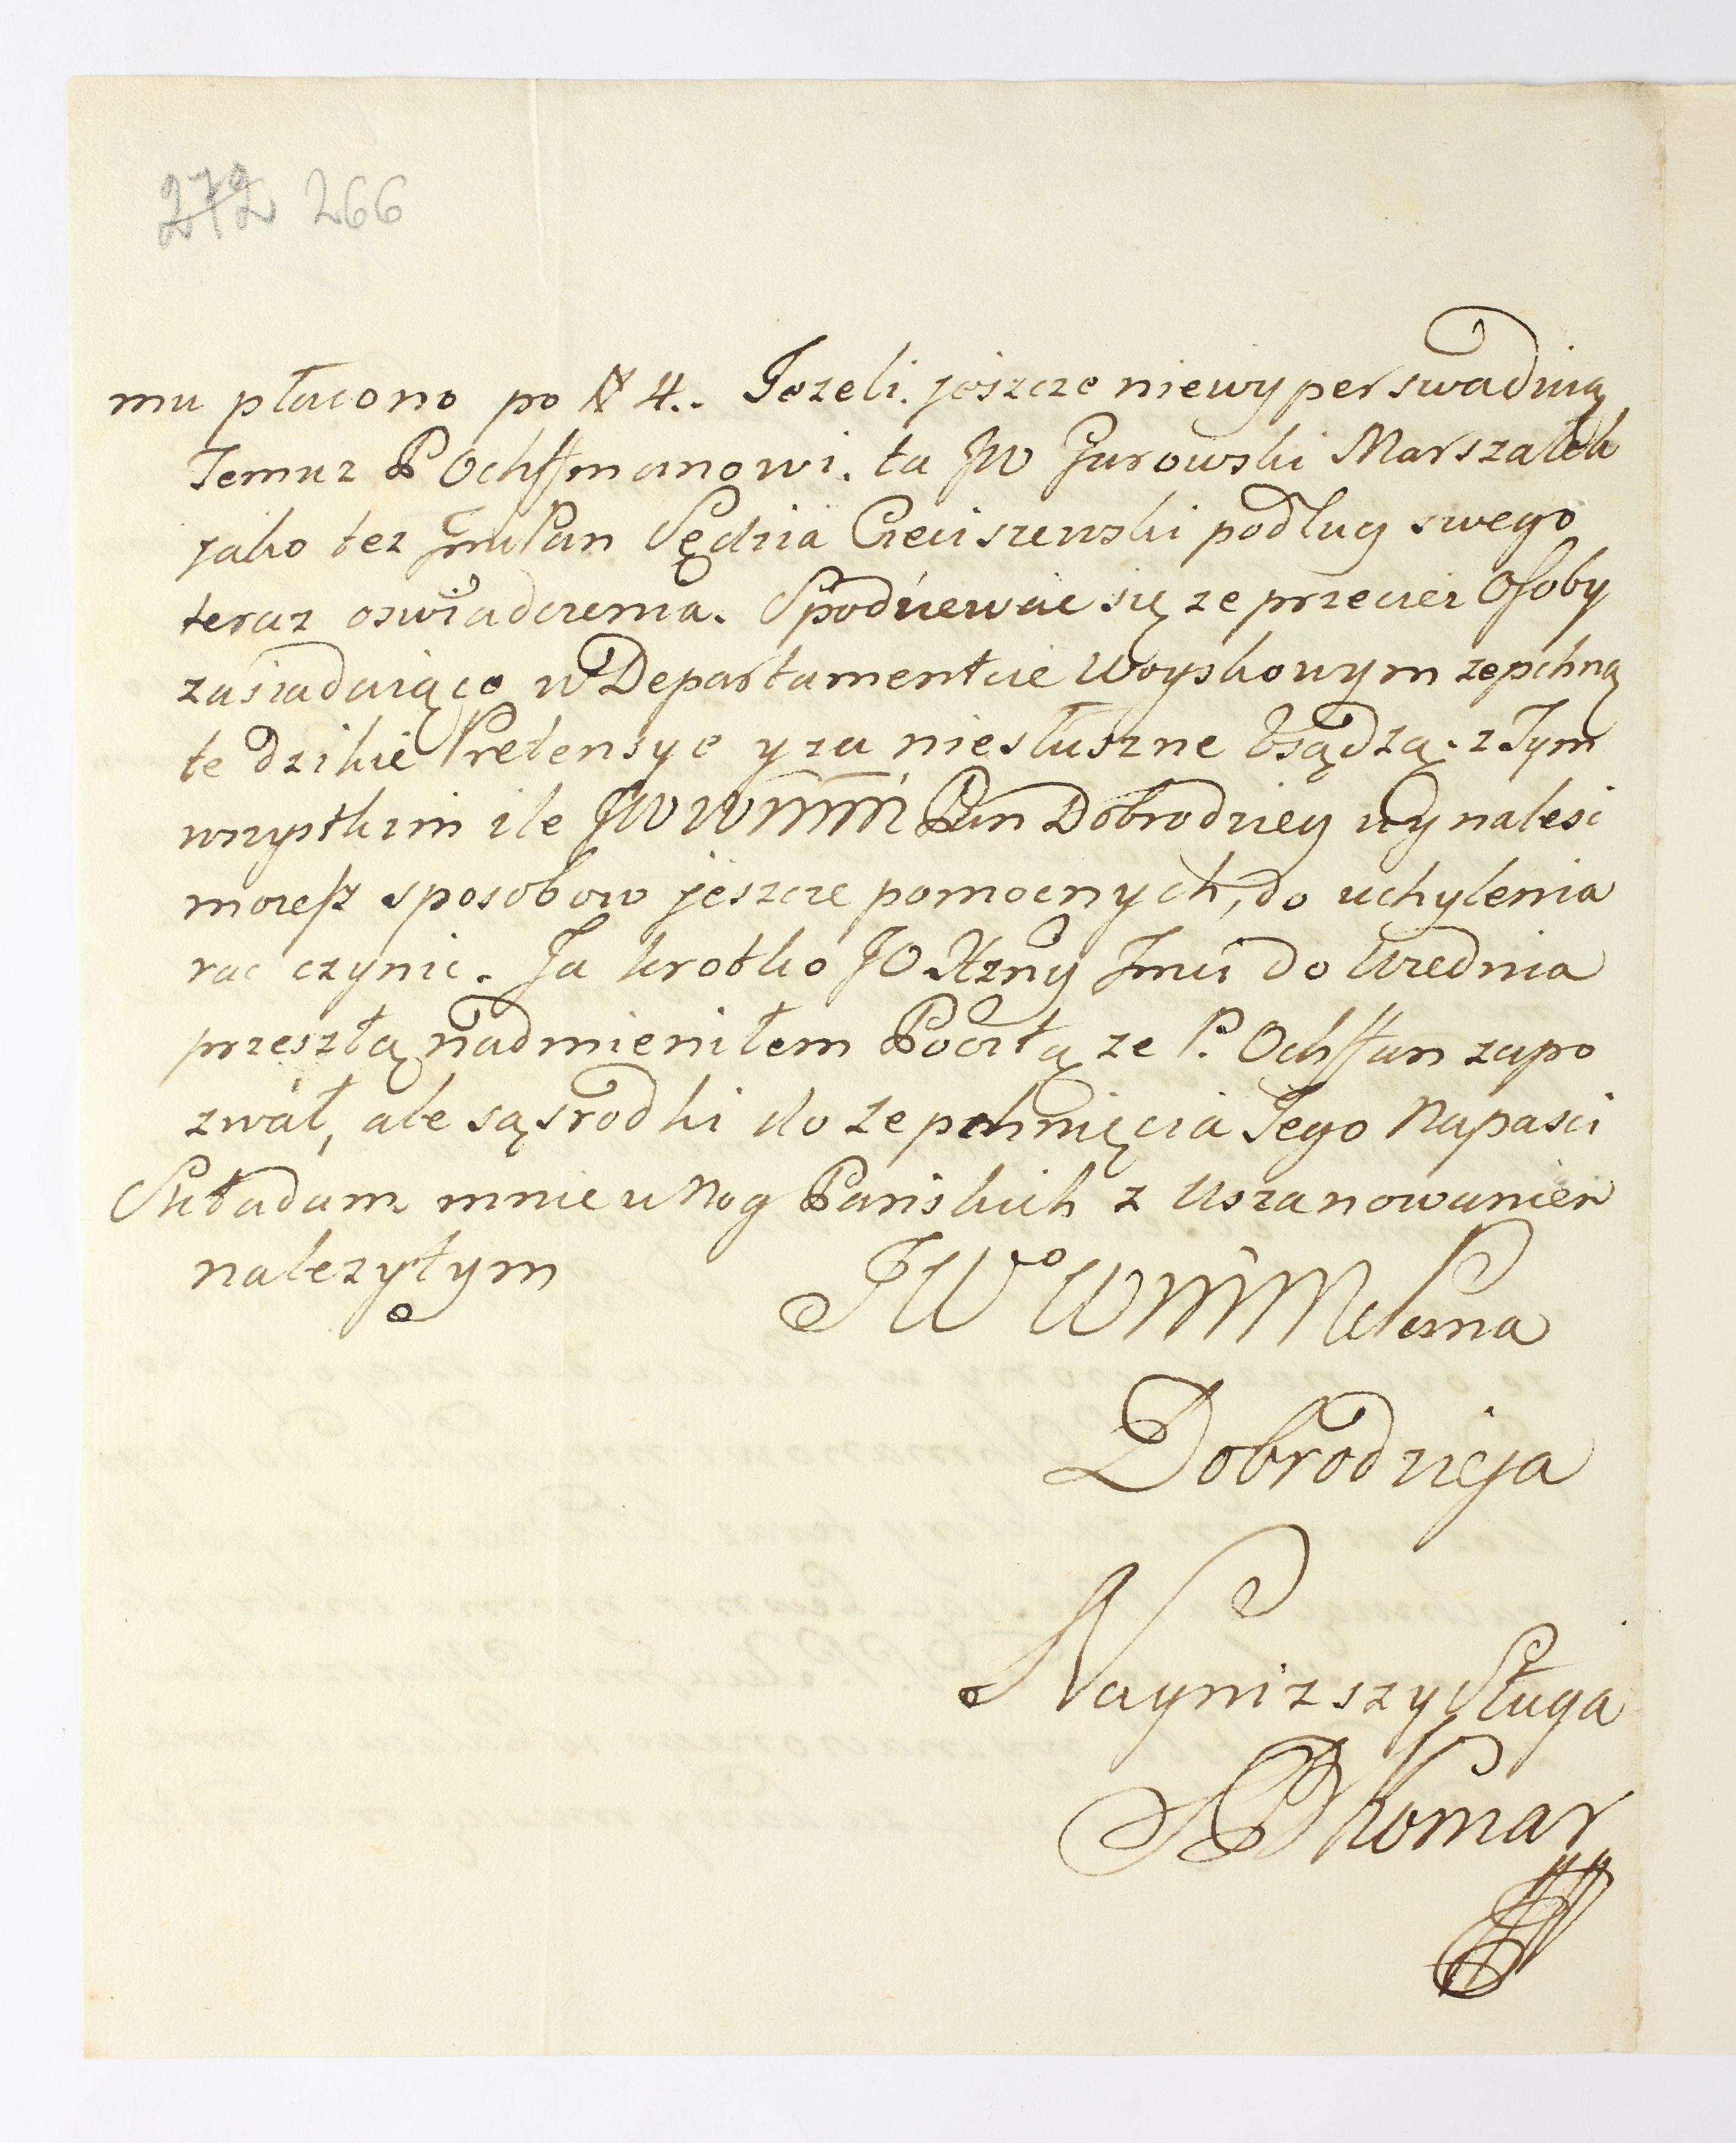 272 266
mu płacono po # 4.. Jezeli jeszcze niewyperswaduią
Temuz P Ochffmanowi. ta JW Jurowski Marszałek
jako tez Jmć Pan Sędzia Cieciszewski podług swego
teraz oswiadczenia. Spodziewac się ze przeciez Osoby
zasiadaiące w Departamentcie Woyskowym zepchną
te dzikie Pretensye y za niesłuszne osądzą. z Tym
wszystkim ile JW WMM Pan Dobrodziey wynalesc
mozesz sposobow jeszcze pomocnych, do uchylenia
rac czynic. Ja krotko JO Xzny Jmci do Wiednia
przeszłą nadmieniłem Pocztą ze P. Ochffan zapo
zwał, ale są srodki do zepchnięcia Tego Napasci
Składam mnie u Nog Panskich z Uszanowaniem
nalezytym
JWo WMM Pana
Dobrodzieja
Naynizszy Sługa
Komar